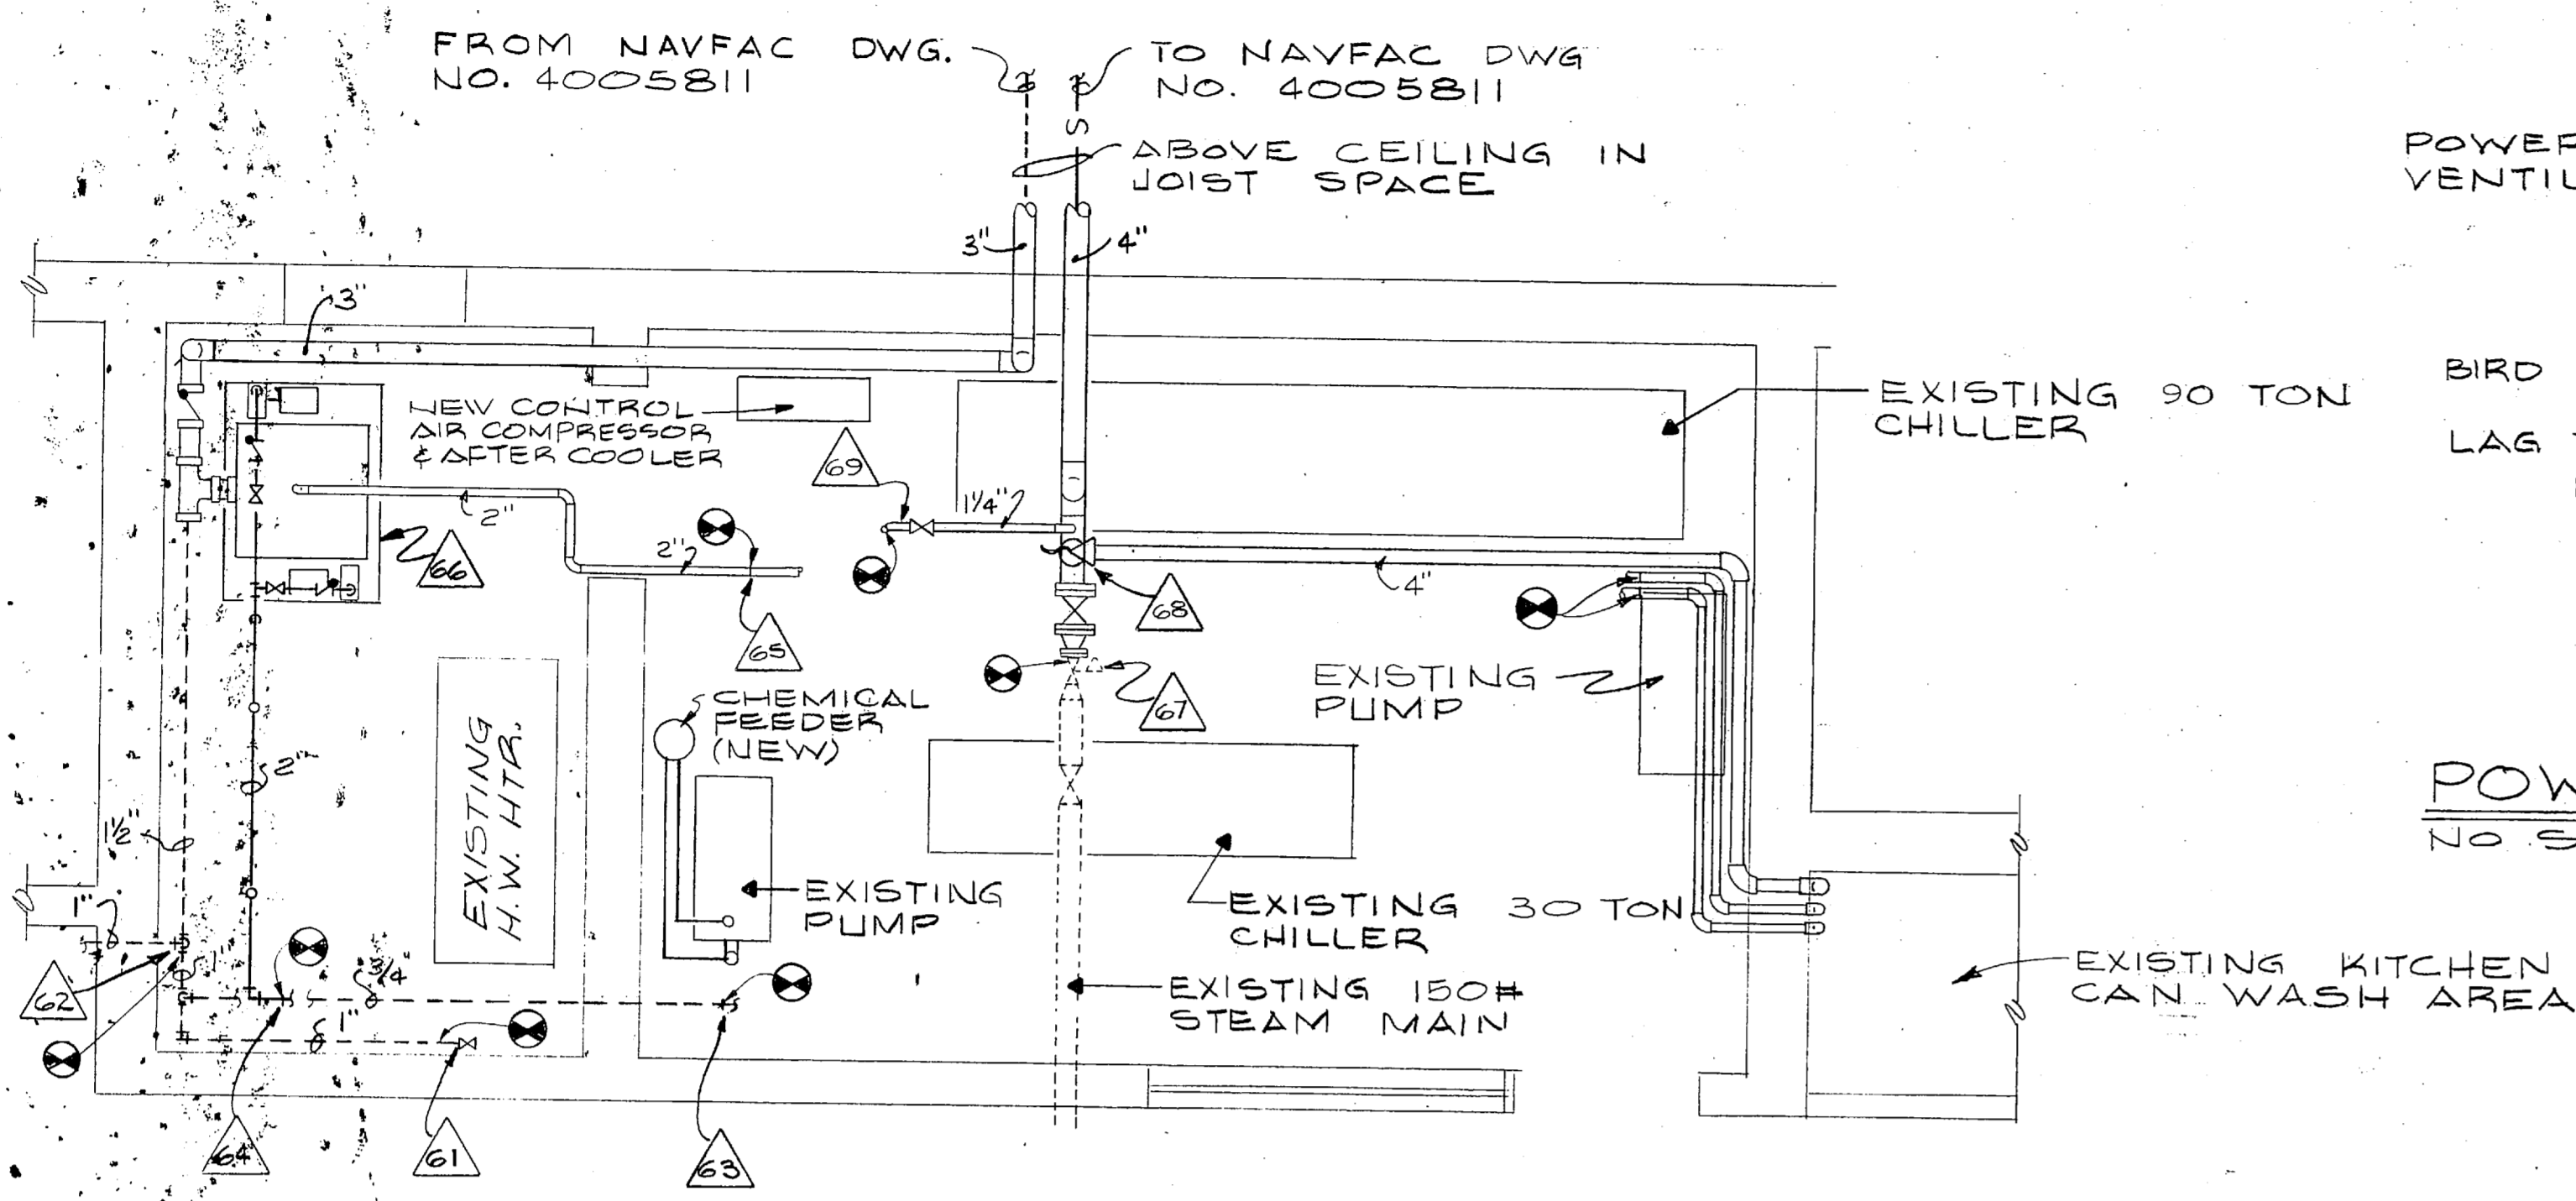 FROM NAVFAC DWG.
NO. 4005811
TO NAVFAC DWG
NO. 4005811
S
ABOVE CEILING IN
JOIST SPACE
POWER
VENTIL
3"
4"
3"
NEW CONTROL
AIR COMPRESSOR
& AFTER COOLER
69
EXISTING 90 TON
CHILLER
BIRD
LAG
2"
1¼"
66
2"
65
68
4"
67
EXISTING
PUMP
CHEMICAL
FEEDER
(NEW)
EXISTING
H.W. HTR.
2"
1½"
POW
NO S
1"
EXISTING
PUMP
EXISTING 30 TON
CHILLER
62
3/4"
EXISTING 150#
STEAM MAIN
EXISTING KITCHEN
CAN WASH AREA
1"
64
61
63